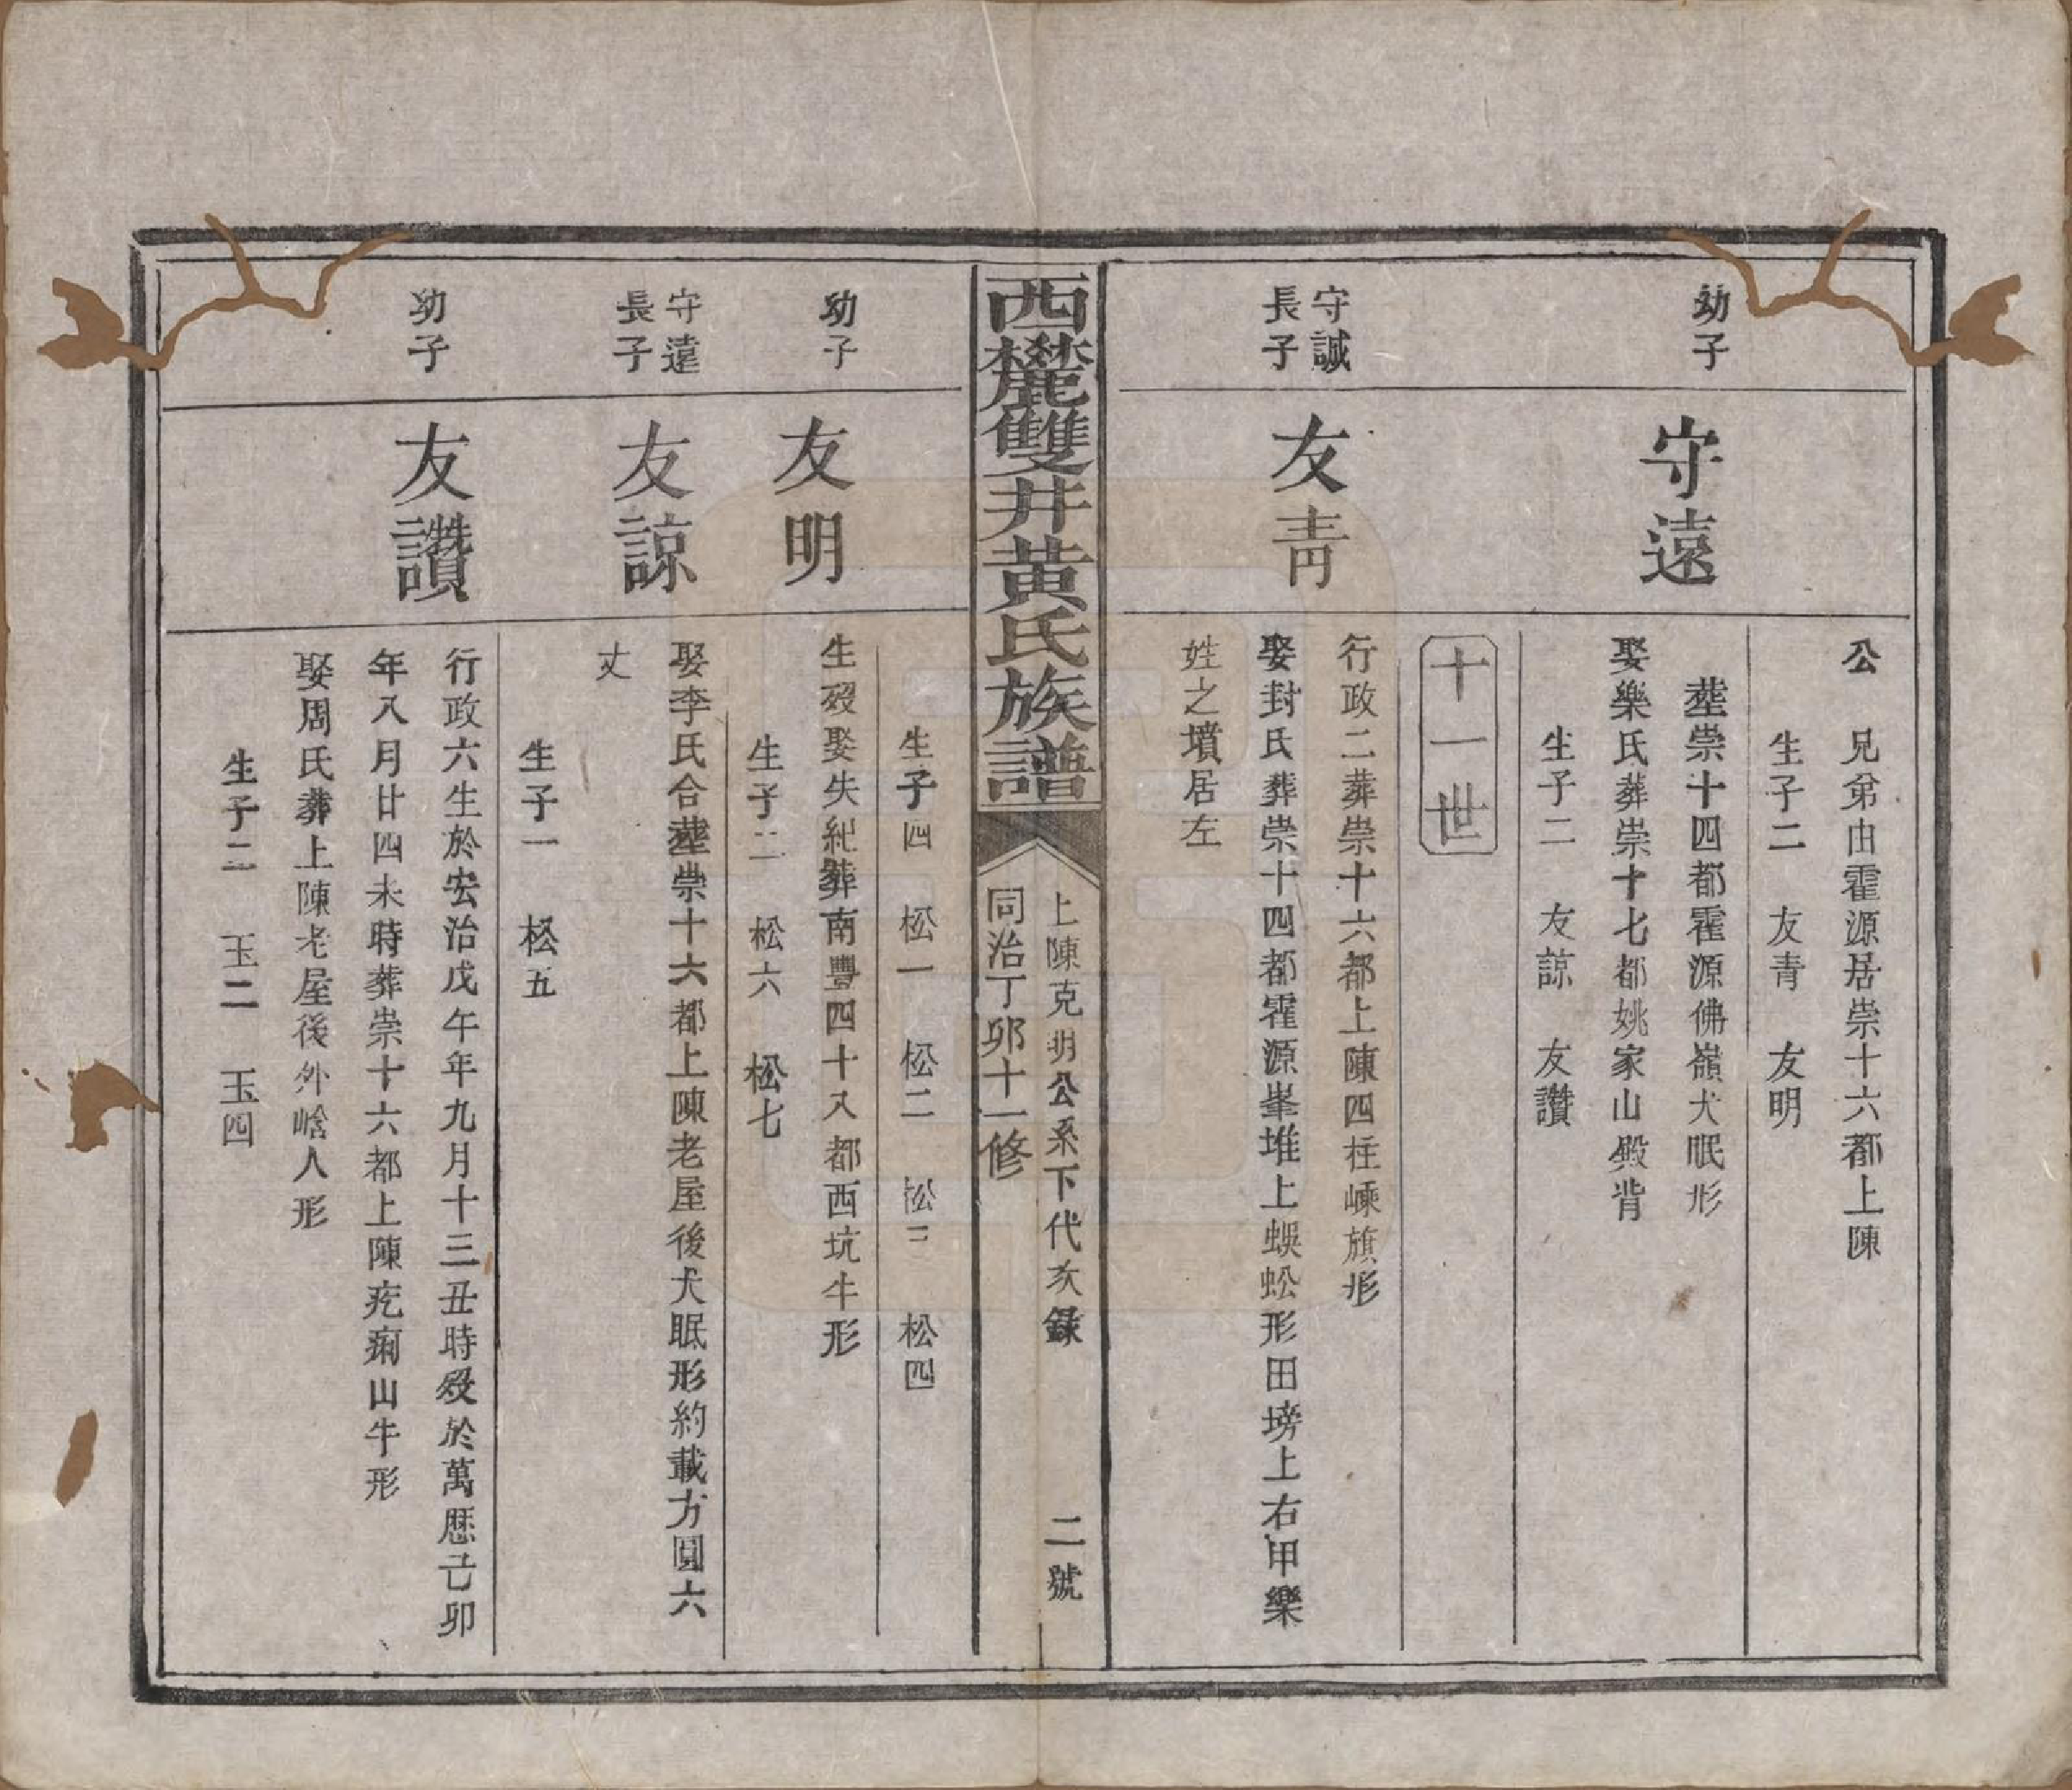 公 兄弟由霍源居崇十六都上陳
生子二 友青 友明
幼子
守遠
塟崇十四都霍源佛嶺犬眠形
娶樂氏葬崇十七都姚家山殿背
生子二 友諒 友讚
十一世
守誠
長子
友青
行政二葬崇十六都上陳四柱嵊旗形
娶封氏葬崇十四都霍源峯堆上蜈蚣形田塝上右甲樂
姓之墳居左
西麓雙井黃氏族譜
上陳克明公系下代亥錄 二號
同治丁卯十一修
生子四 松一 松二 松三 松四
幼子
友明
生歿娶失紀葬南豐四十八都西坑牛形
生子二 松六 松七
守遠
長子
友諒
娶李氏合塟崇十六都上陳老屋後犬眠形約載方圓六
丈
生子一 松五
幼子
友讚
行政六生於宏治戊午年九月十三丑時歿於萬歷己卯
年八月廿四未時葬崇十六都上陳疙痢山牛形
娶周氏葬上陳老屋後外㟏人形
生子二 玉二 玉四